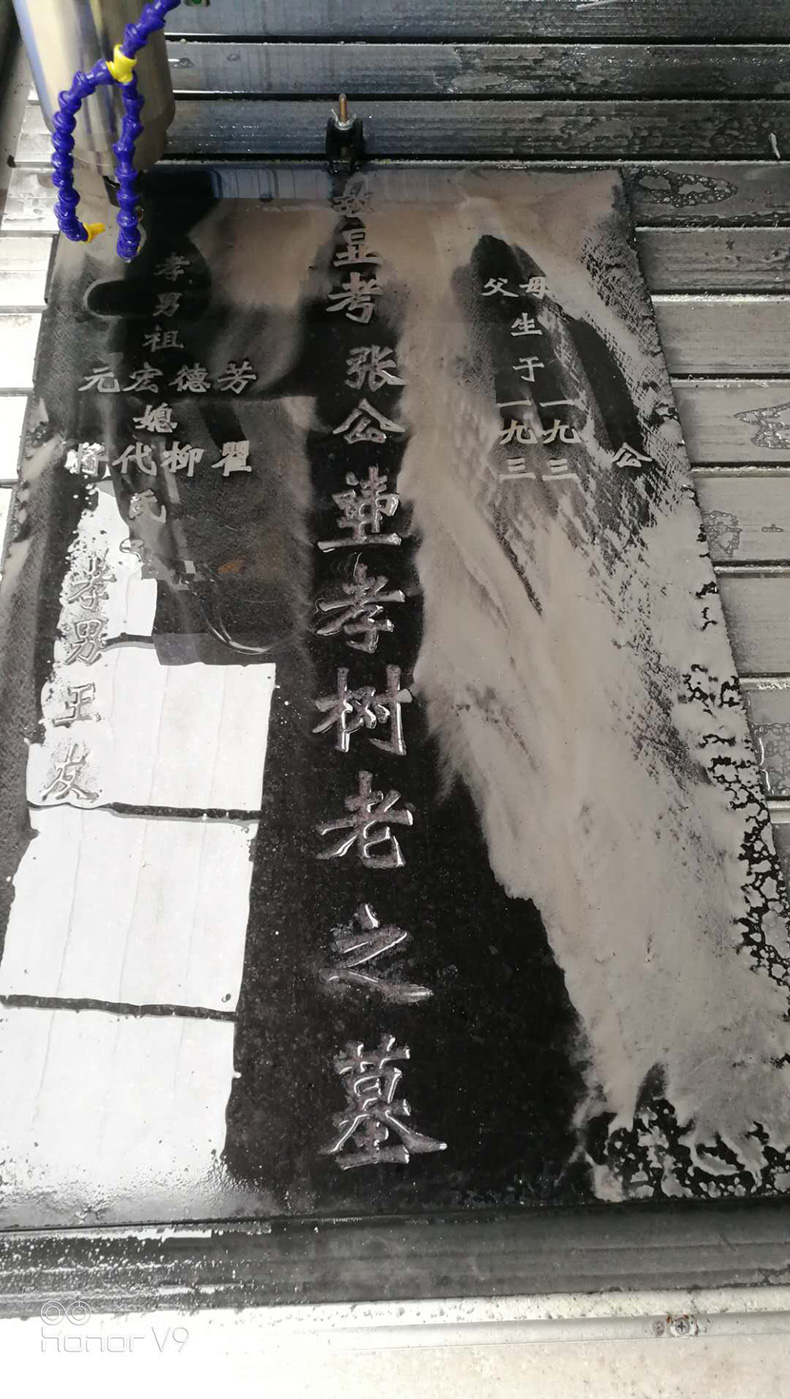 公
父母
生
于
一一
九九
三三
显考张公孝树老之墓
孝男祖
元宏德芳
媳
代柳瞿
氏
孝男王友
honor V9